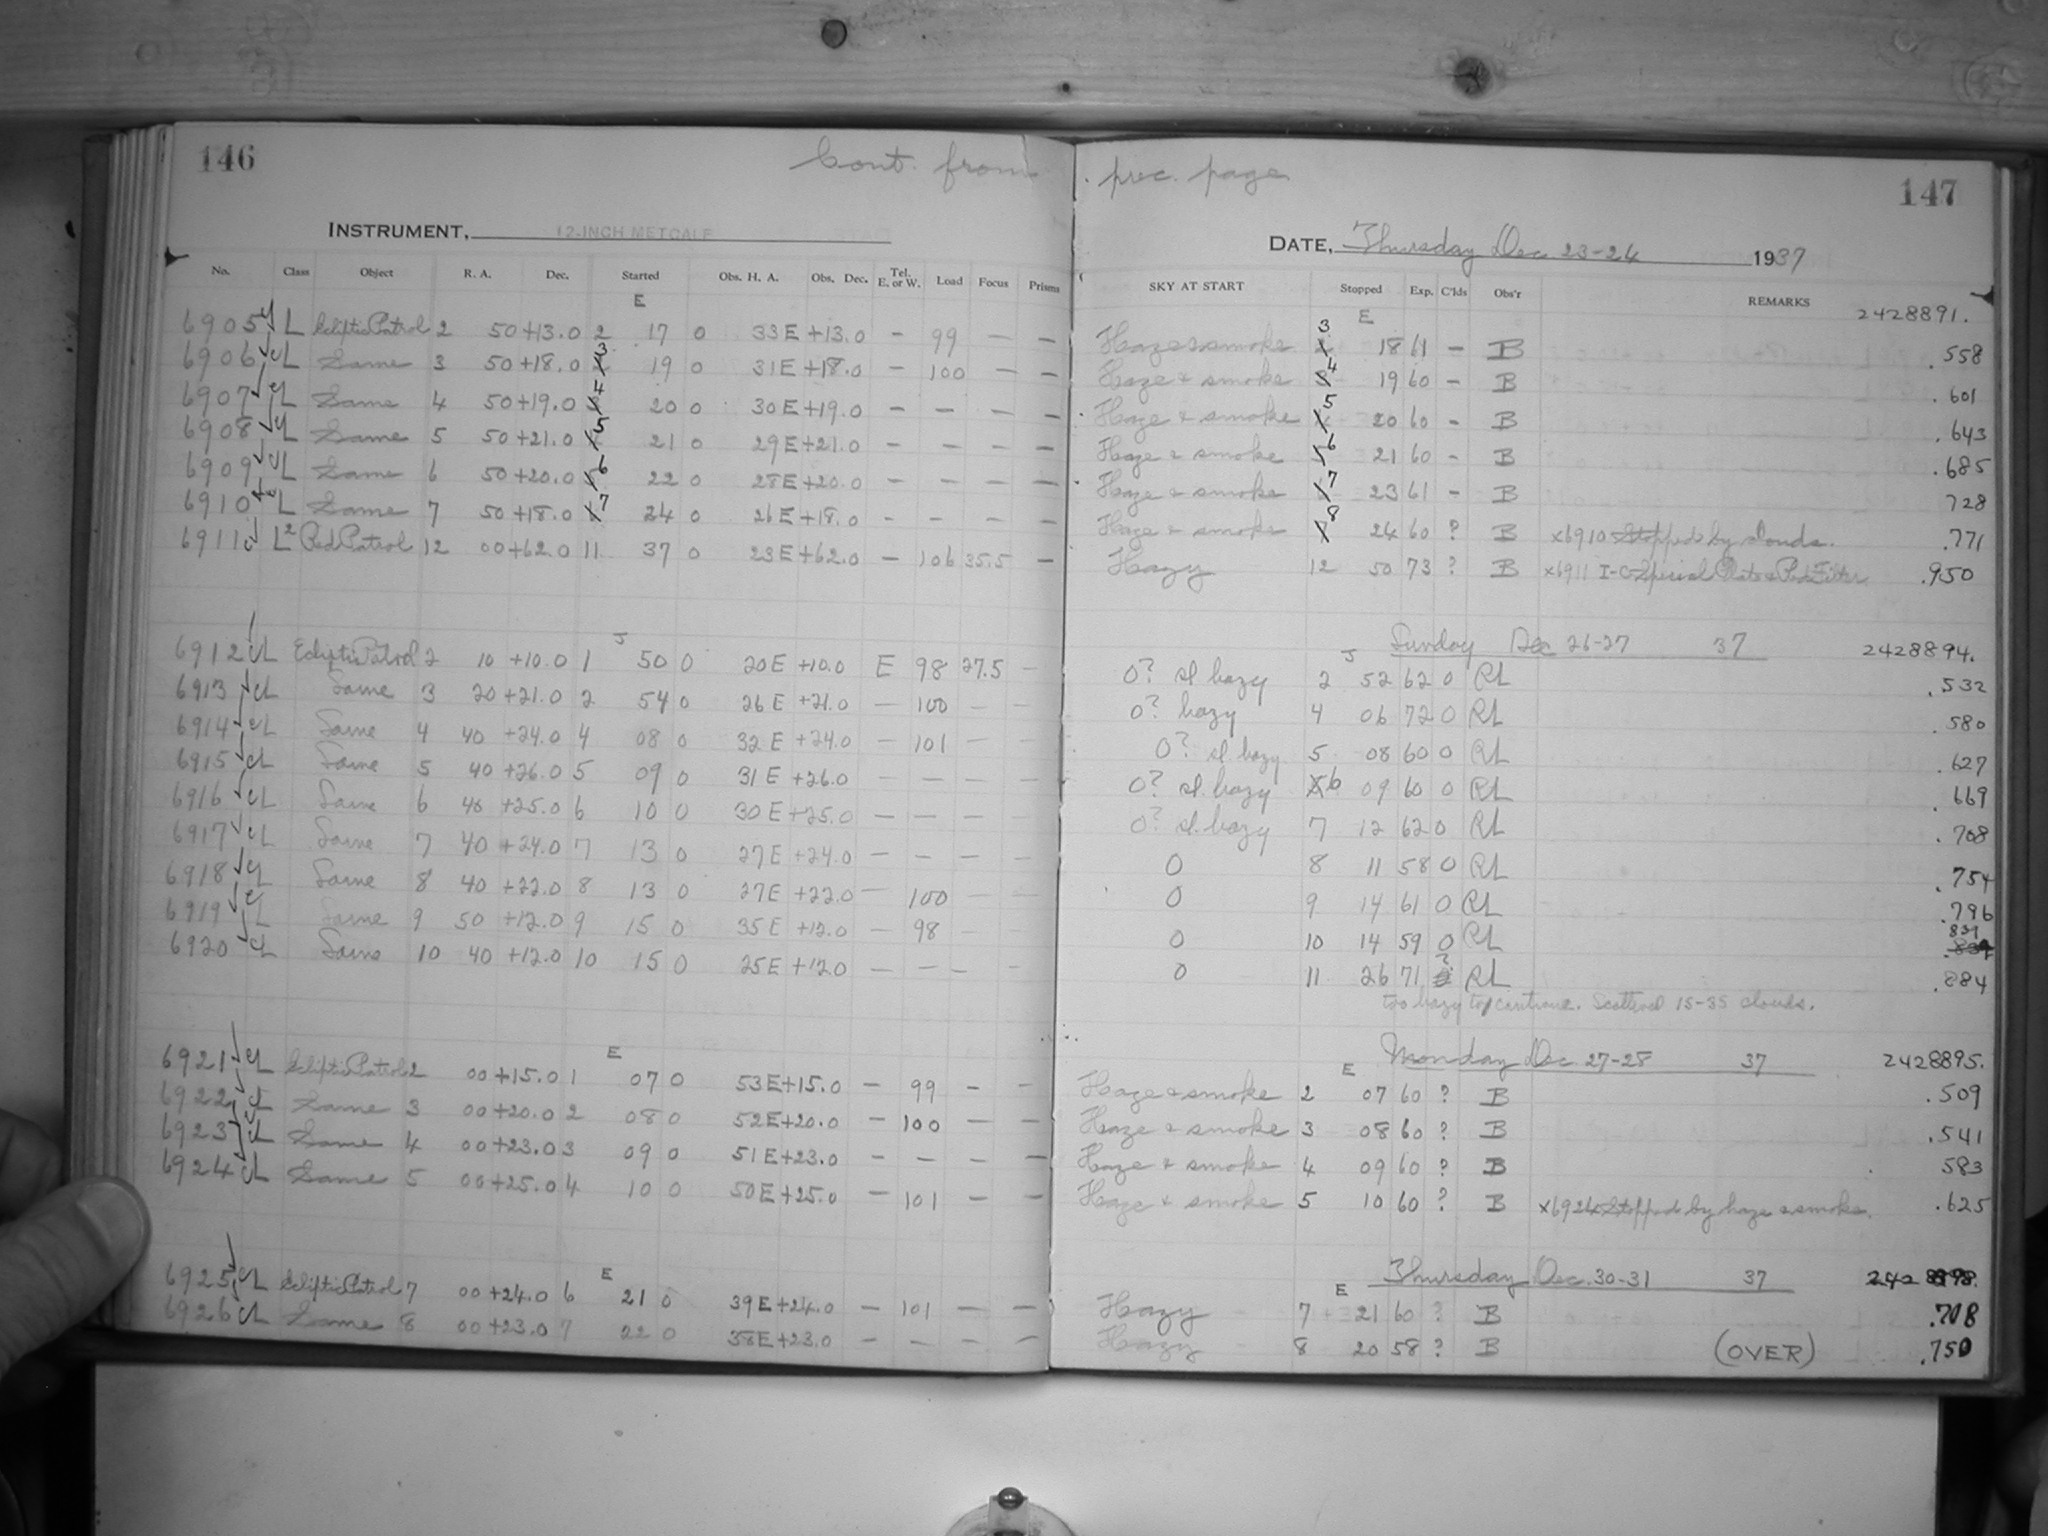 146
Cont. from prec. page
147
INSTRUMENT, 12-INCH METCALF
DATE, Thursday Dec 23-24 1937
No. Class Object R. A. Dec. Started Obs. H. A. Obs. Dec. Tel. E. or W. Load Focus Prisms SKY AT START Stopped Exp. C'lds Obs'r REMARKS
E E 2428891.
6905 L Ecliptic Patrol 2 50 +13.0 2 17 0 33E +13.0 - 99 - - Haze & smoke 3 18 61 - B .558
6906 L Same 3 50 +18.0 3 19 0 31E +18.0 - 100 - - Haze & smoke 4 19 60 - B .601
6907 L Same 4 50 +19.0 4 20 0 30E +19.0 - - - - Haze & smoke 5 20 60 - B .643
6908 L Same 5 50 +21.0 5 21 0 29E +21.0 - - - - Haze & smoke 6 21 60 - B .685
6909 L Same 6 50 +20.0 6 22 0 28E +20.0 - - - - Haze & smoke 7 23 61 - B 728
6910 L Same 7 50 +18.0 7 24 0 26E +18.0 - - - - Haze & smoke 8 24 60 ? B x6910 Stopped by clouds. .771
6911 L² Red Patrol 12 00 +62.0 11 37 0 23E +62.0 - 106 35.5 - Hazy 12 50 73 ? B x6911 I-C Special Plate & Red Filter .950
Sunday Dec 26-27 37 2428894.
J J
6912 L Ecliptic Patrol 2 10 +10.0 1 50 0 20E +10.0 E 98 27.5 - 0? sl hazy 2 52 62 0 RL .532
6913 L Same 3 20 +21.0 2 54 0 26E +21.0 - 100 - - 0? hazy 4 06 72 0 RL .580
6914 L Same 4 40 +24.0 4 08 0 32E +24.0 - 101 - - 0? sl hazy 5 08 60 0 RL .627
6915 L Same 5 40 +26.0 5 09 0 31E +26.0 - - - - 0? sl. hazy 6 09 60 0 RL .669
6916 L Same 6 40 +25.0 6 10 0 30E +25.0 - - - - 0? sl. hazy 7 12 62 0 RL .708
6917 L Same 7 40 +24.0 7 13 0 27E +24.0 - - - - 0 8 11 58 0 RL .754
6918 L Same 8 40 +22.0 8 13 0 27E +22.0 - 100 - - 0 9 14 61 0 RL .796
6919 L Same 9 50 +12.0 9 15 0 35E +12.0 - 98 - - 0 10 14 59 0 RL 837
6920 L Same 10 40 +12.0 10 15 0 25E +12.0 - - - - 0 11 26 71 ? RL .884
too hazy to continue. Scattered 15-35 clouds.
Monday Dec 27-28 37 2428895.
E E
6921 L Ecliptic Patrol 2 00 +15.0 1 07 0 53E +15.0 - 99 - - Haze & smoke 2 07 60 ? B .509
6922 L Same 3 00 +20.0 2 08 0 52E +20.0 - 100 - - Haze & smoke 3 08 60 ? B .541
6923 L Same 4 00 +23.0 3 09 0 51E +23.0 - - - - Haze & smoke 4 09 60 ? B 583
6924 L Same 5 00 +25.0 4 10 0 50E +25.0 - 101 - - Haze & smoke 5 10 60 ? B x6924 Stopped by haze & smoke. .625
Thursday Dec. 30-31 37 2428898.
E E
6925 L Ecliptic Patrol 7 00 +24.0 6 21 0 39E +24.0 - 101 - - Hazy 7 21 60 ? B .708
6926 L Same 8 00 +23.0 7 22 0 38E +23.0 - - - - Hazy 8 20 58 ? B (OVER) .750